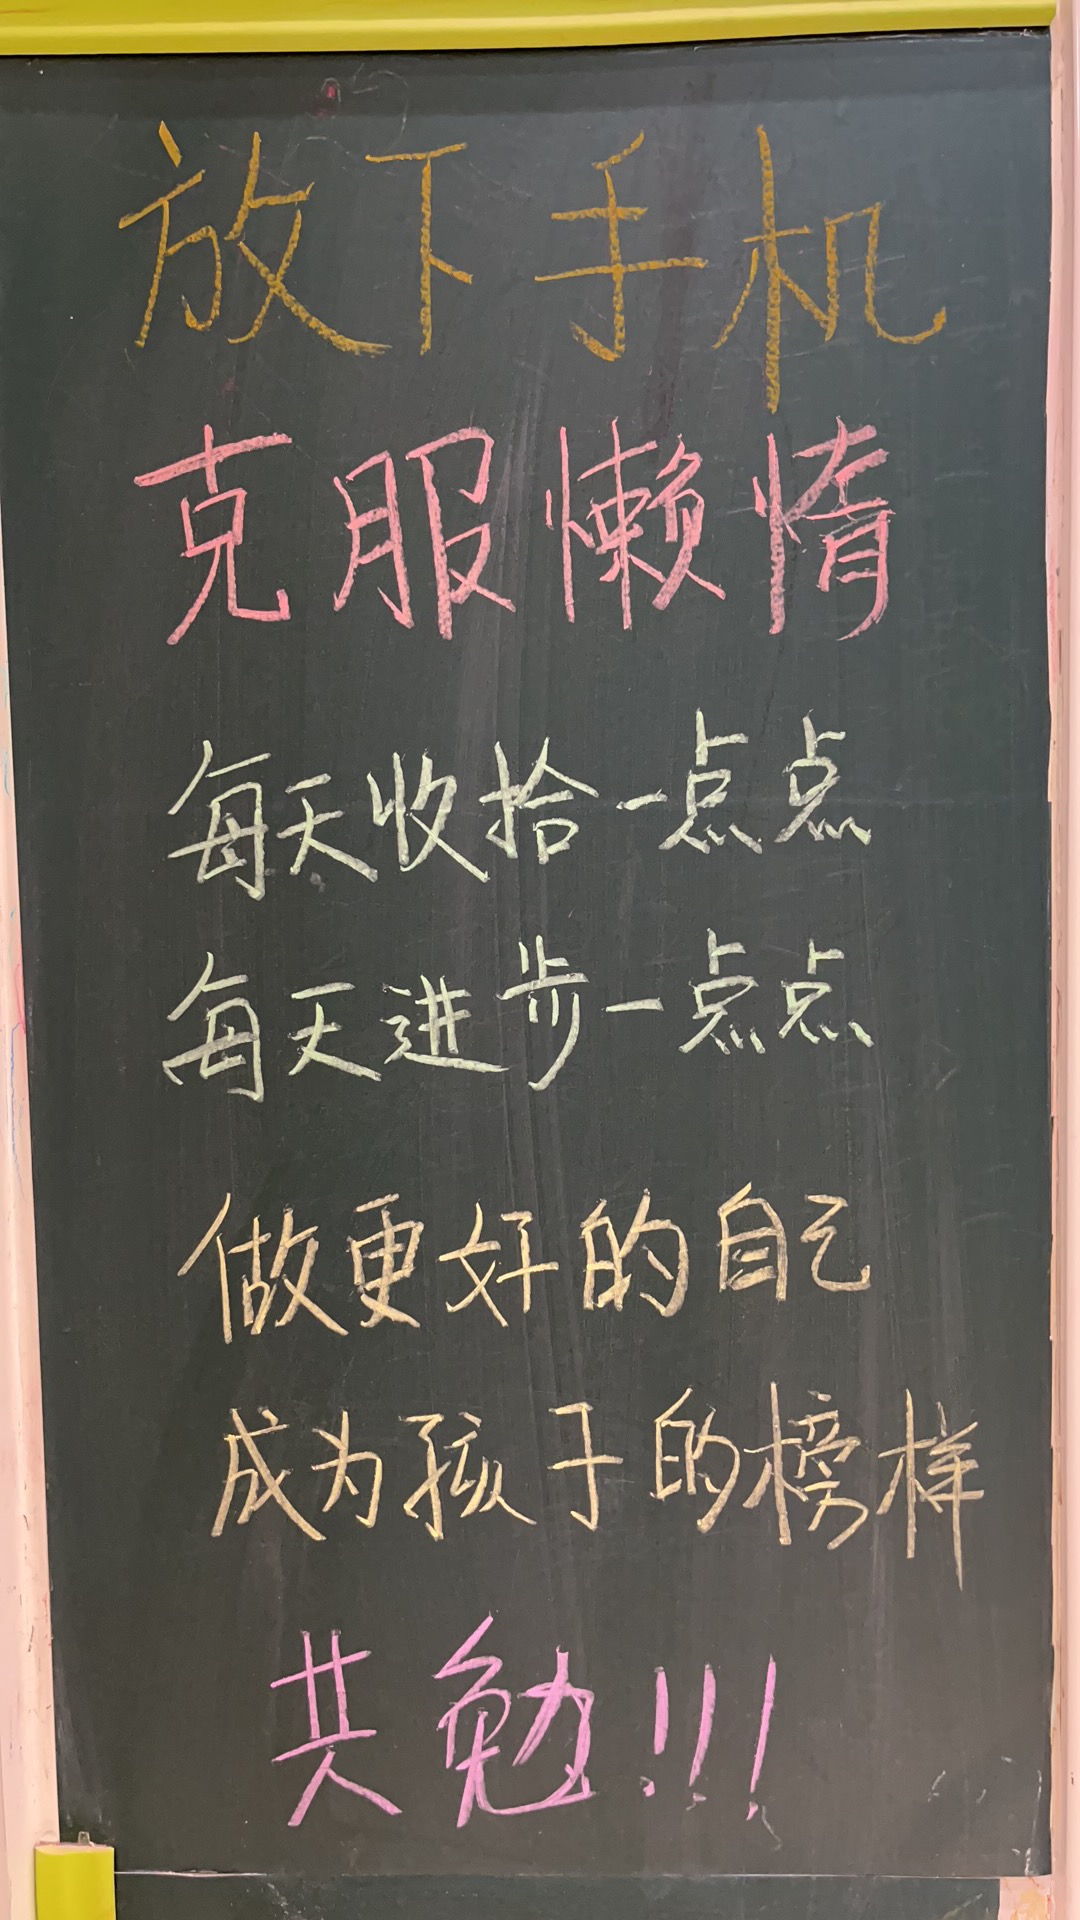 放下手机
克服懒惰
每天收拾一点点
每天进步一点点
做更好的自己
成为孩子的榜样
共勉!!!